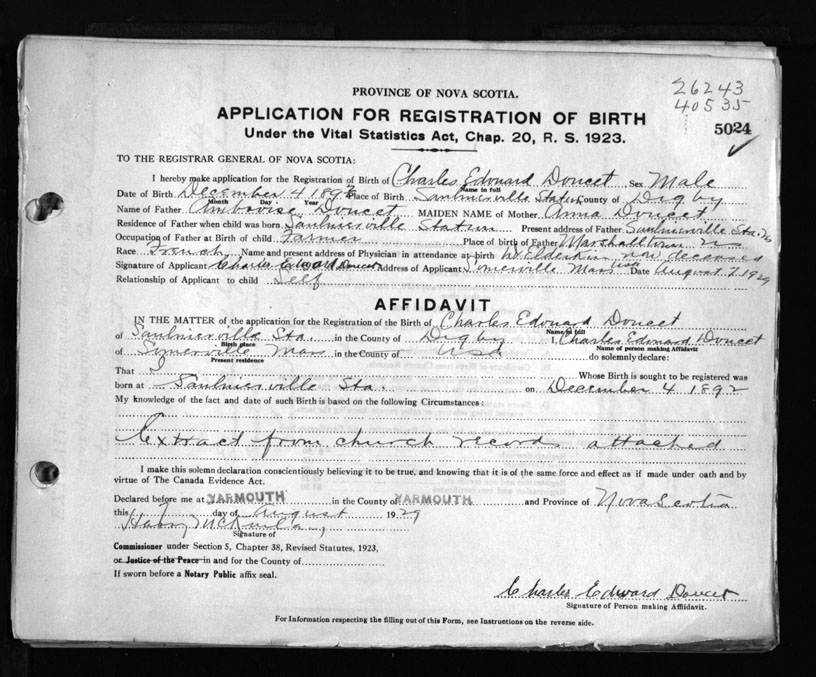 26243
40535
PROVINCE OF NOVA SCOTIA.
5024
APPLICATION FOR REGISTRATION OF BIRTH
Under the Vital Statistics Act, Chap. 20, R. S. 1923.
TO THE REGISTRAR GENERAL OF NOVA SCOTIA:
I hereby make application for the Registration of Birth of Charles Edouard Doucet Sex Male
Name in full
Date of Birth December 4 1892 Place of Birth Saulnierville Station County of Digby
Month Day Year
Name of Father Ambroise Doucet MAIDEN NAME of Mother Anna Doucet
Residence of Father when child was born Saulnierville Station Present address of Father Saulnierville Sta.
Occupation of Father at Birth of child Farmer Place of birth of Father Marshalltown NS
Race French Name and present address of Physician in attendance at birth Dr Elderkin now deceased
Signature of Applicant Charles Edward Doucet Address of Applicant Somerville Mass USA Date August 7 1929
Relationship of Applicant to child Self
AFFIDAVIT
IN THE MATTER of the application for the Registration of the Birth of Charles Edouard Doucet
Name in full
of Saulnierville Sta. in the County of Digby I, Charles Edouard Doucet
Birth place Name of person making Affidavit
of Somerville Mass in the County of USA do solemnly declare:
Present residence
That I Whose Birth is sought to be registered was
born at Saulnierville Sta. on December 4 1892
My knowledge of the fact and date of such Birth is based on the following Circumstances:
Extract from church records attached
I make this solemn declaration conscientiously believing it to be true, and knowing that it is of the same force and effect as if made under oath and by
virtue of The Canada Evidence Act.
Declared before me at YARMOUTH in the County of YARMOUTH and Province of Nova Scotia
this 7 day of August 1929
Harry
Signature of
Commissioner under Section 5, Chapter 38, Revised Statutes, 1923,
or Justice of the Peace in and for the County of
If sworn before a Notary Public affix seal.
Charles Edward Doucet
Signature of Person making Affidavit.
For Information respecting the filling out of this Form, see Instructions on the reverse side.